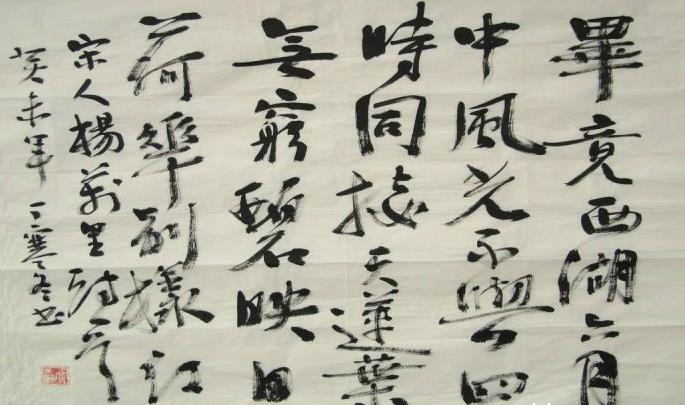 畢竟西湖六月
中風光不與四
時同接天蓮葉
無窮碧映日
荷華別樣紅
宋人楊萬里詩
癸未年丁寒冬书